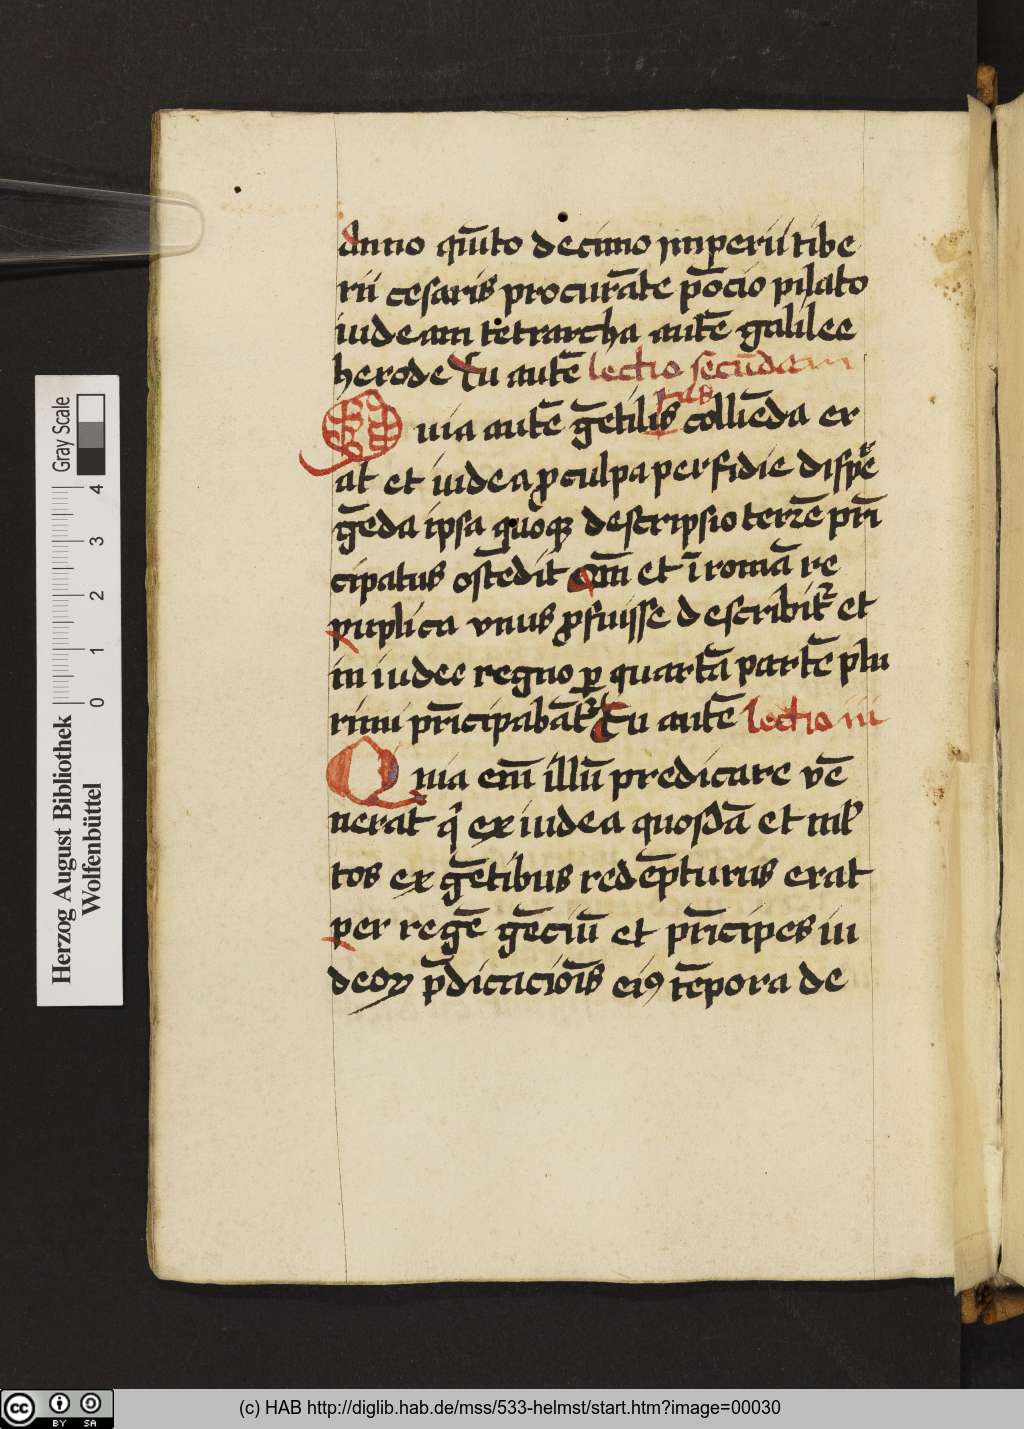 Anno qui̅to decimo imperii tibe
rii cesaris procura̅te po̅cio pilato
iudeam tetrarcha aute̅ galilee
herode Tu aute̅ lectio secu̅dam
Quia aute̅ ge̅tilis collie̅da er
tas
at et iudea ꝓ culpa perfidie disp̱e̅
ge̅da ipsa quoqꝫ descripsio terre̅ pri̅
cipatus oste̅dit Om̅ et i̅ roma̅ re
puplica vnus ꝓfuisse describit᷑ et
in iudee regno ꝑ quarta̅ parte̅ plu
rimi pri̅cipaba̅t᷑ Tu aute̅ lectio iii
Quia em̅ illu̅ predicare ve̅
nerat qͥ ex iudea quosda̅ et ml̕
tos ex ge̅tibus rede̅pturus erat
per rege̅ ge̅ciu̅ et pri̅cipes iu
deoꝝ p̅dicacio̅is eiꝯ te̅pora de
Herzog August Bibliothek
Wolfenbüttel
Gray Scale
0 1 2 3 4
cc BY SA
(c) HAB http://diglib.hab.de/mss/533-helmst/start.htm?image=00030